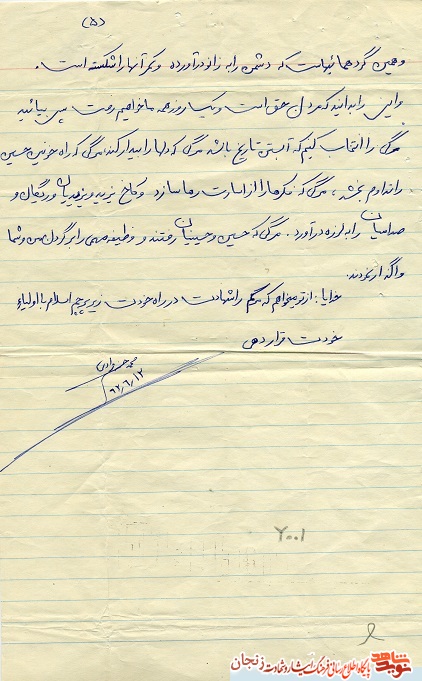 (۵)
و همین گردهمائیهاست که دشمن را به زانو درآورده و کمر آنها را شکسته است.
و این را بدانید که مردن حق است و یک روز همه ما خواهیم رفت پس بیائید
مرگی را انتخاب کنیم که آبستن تاریخ باشد مرگی که دلها را بیدار کند، مرگی که راه خونین حسین
را تداوم بخشد، مرگی که فکرها را از اسارت رها سازد و کاخ یزید و یزیدیان و ریگان و
صدامیان را به لرزه درآورد. مرگی که حسین و حسینیان رفتند و وظیفه مهمی را بر گردن من و شما
واگذار نمودند.
خدایا: از تو میخواهم که مرگم را شهادت در راه خودت زیر پرچم اسلام با اولیاء
خودت قرار دهی
محمد
۶۲/۶/۱۲
۲۰۰۱
نوید شاهد
پایگاه اطلاع رسانی فرهنگ ایثار و شهادت زنجان